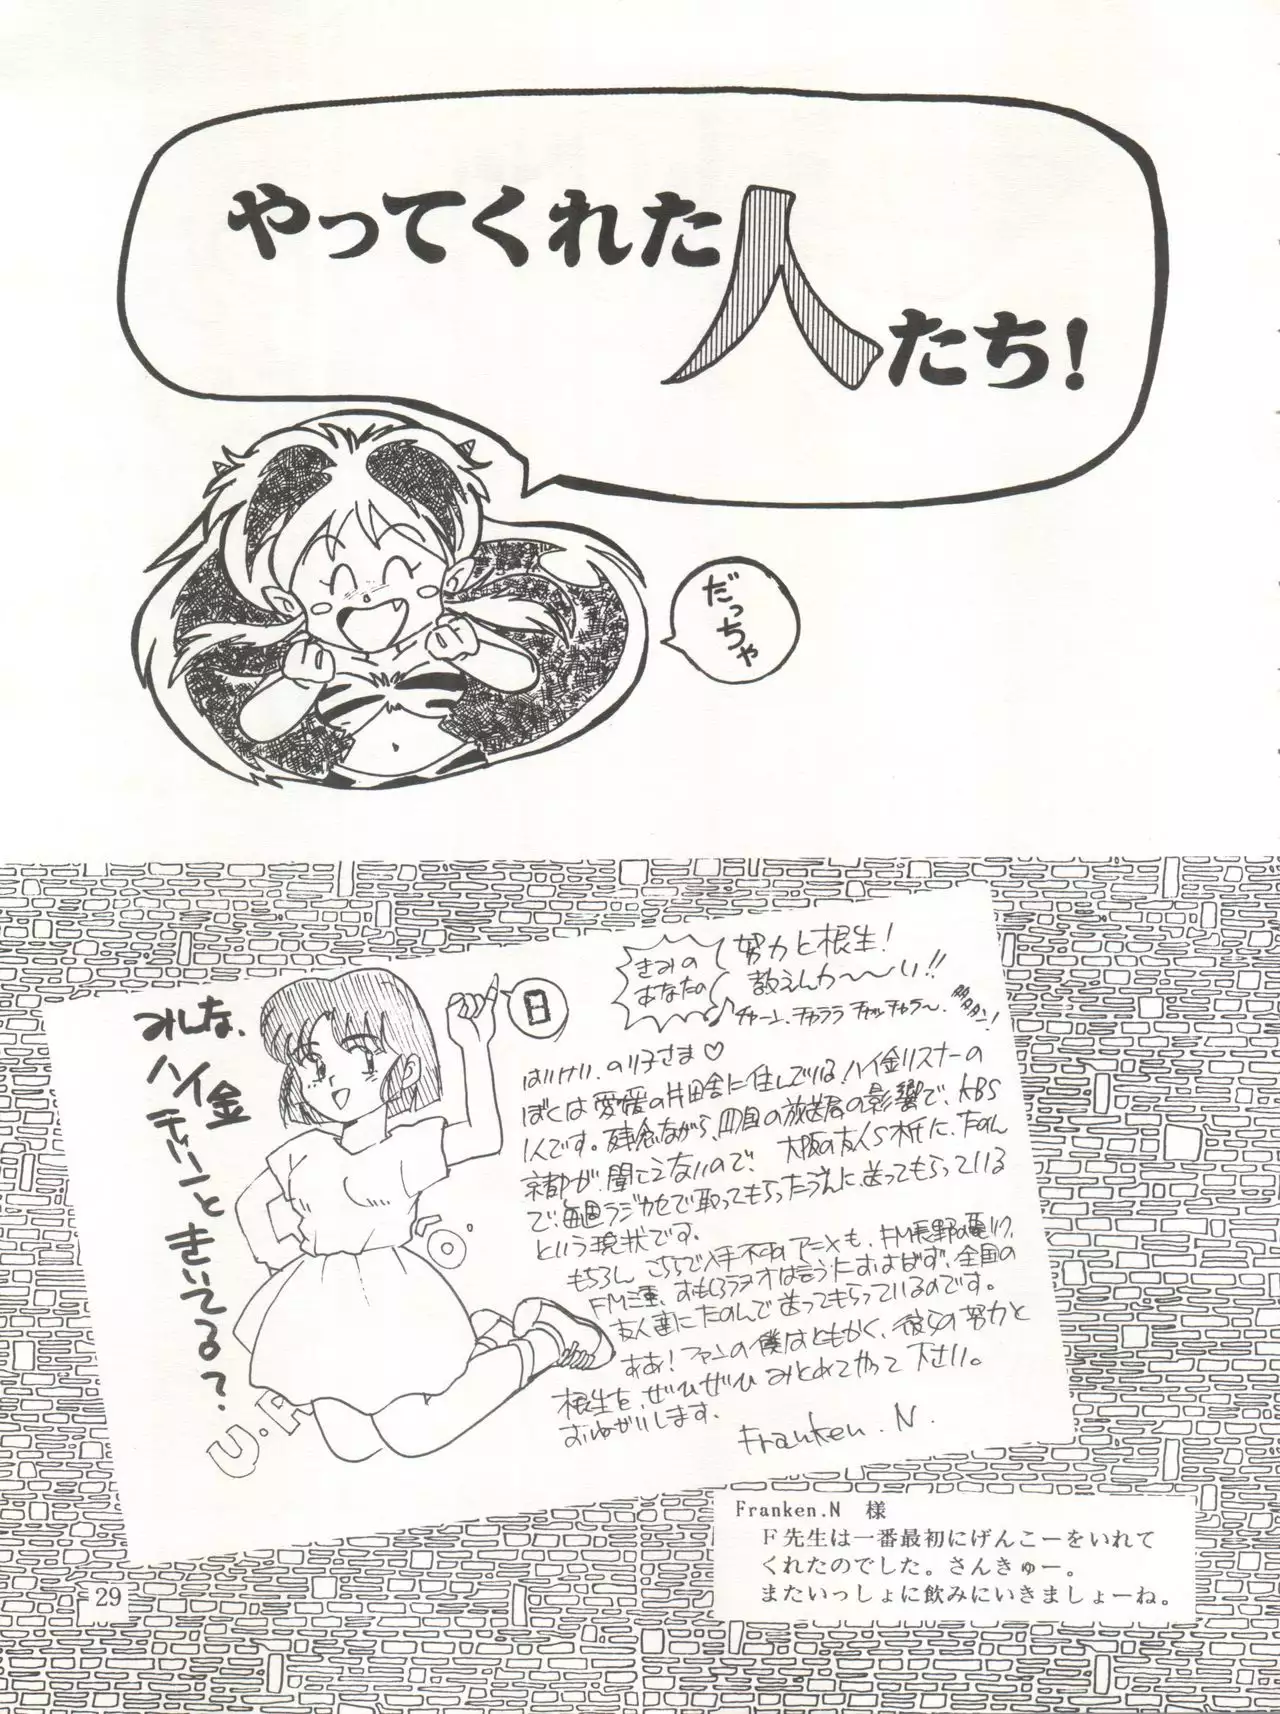 やってくれた人たち!
だっちゃ
みんな、
ハイ金
ティリーと
きいてる?
日
きみの
あなたの
努力と根生!
教えんか〜〜い!!
チャーン、チャララ チャッチャラ〜、
はいけい、のり子さま♡
ぼくは愛媛の片田舎に住んでいる、ハイ金リスナーの
1人です。残念ながら、四国の放送局の影響で、KBS
京都が、聞こえないので、大阪の友人S木氏に、たのん
で、毎週ラジカセで取ってもらったうえに、送ってもらっている
という現状です。
もちろん、こちらで入手不可のアニメも、FM長野の
FM三重、おもしろラヂオは言うにおよばず、全国の
友人達にたのんで送ってもらっているのです。
ああ!ファンの僕はともかく、彼らの努力と
根生を、ぜひぜひみとめてやって下さい。
おねがいします。
Franken.N.
U.F.O.
Franken.N 様
F先生は一番最初にげんこーをいれて
くれたのでした。さんきゅー。
またいっしょに飲みにいきましょーね。
29